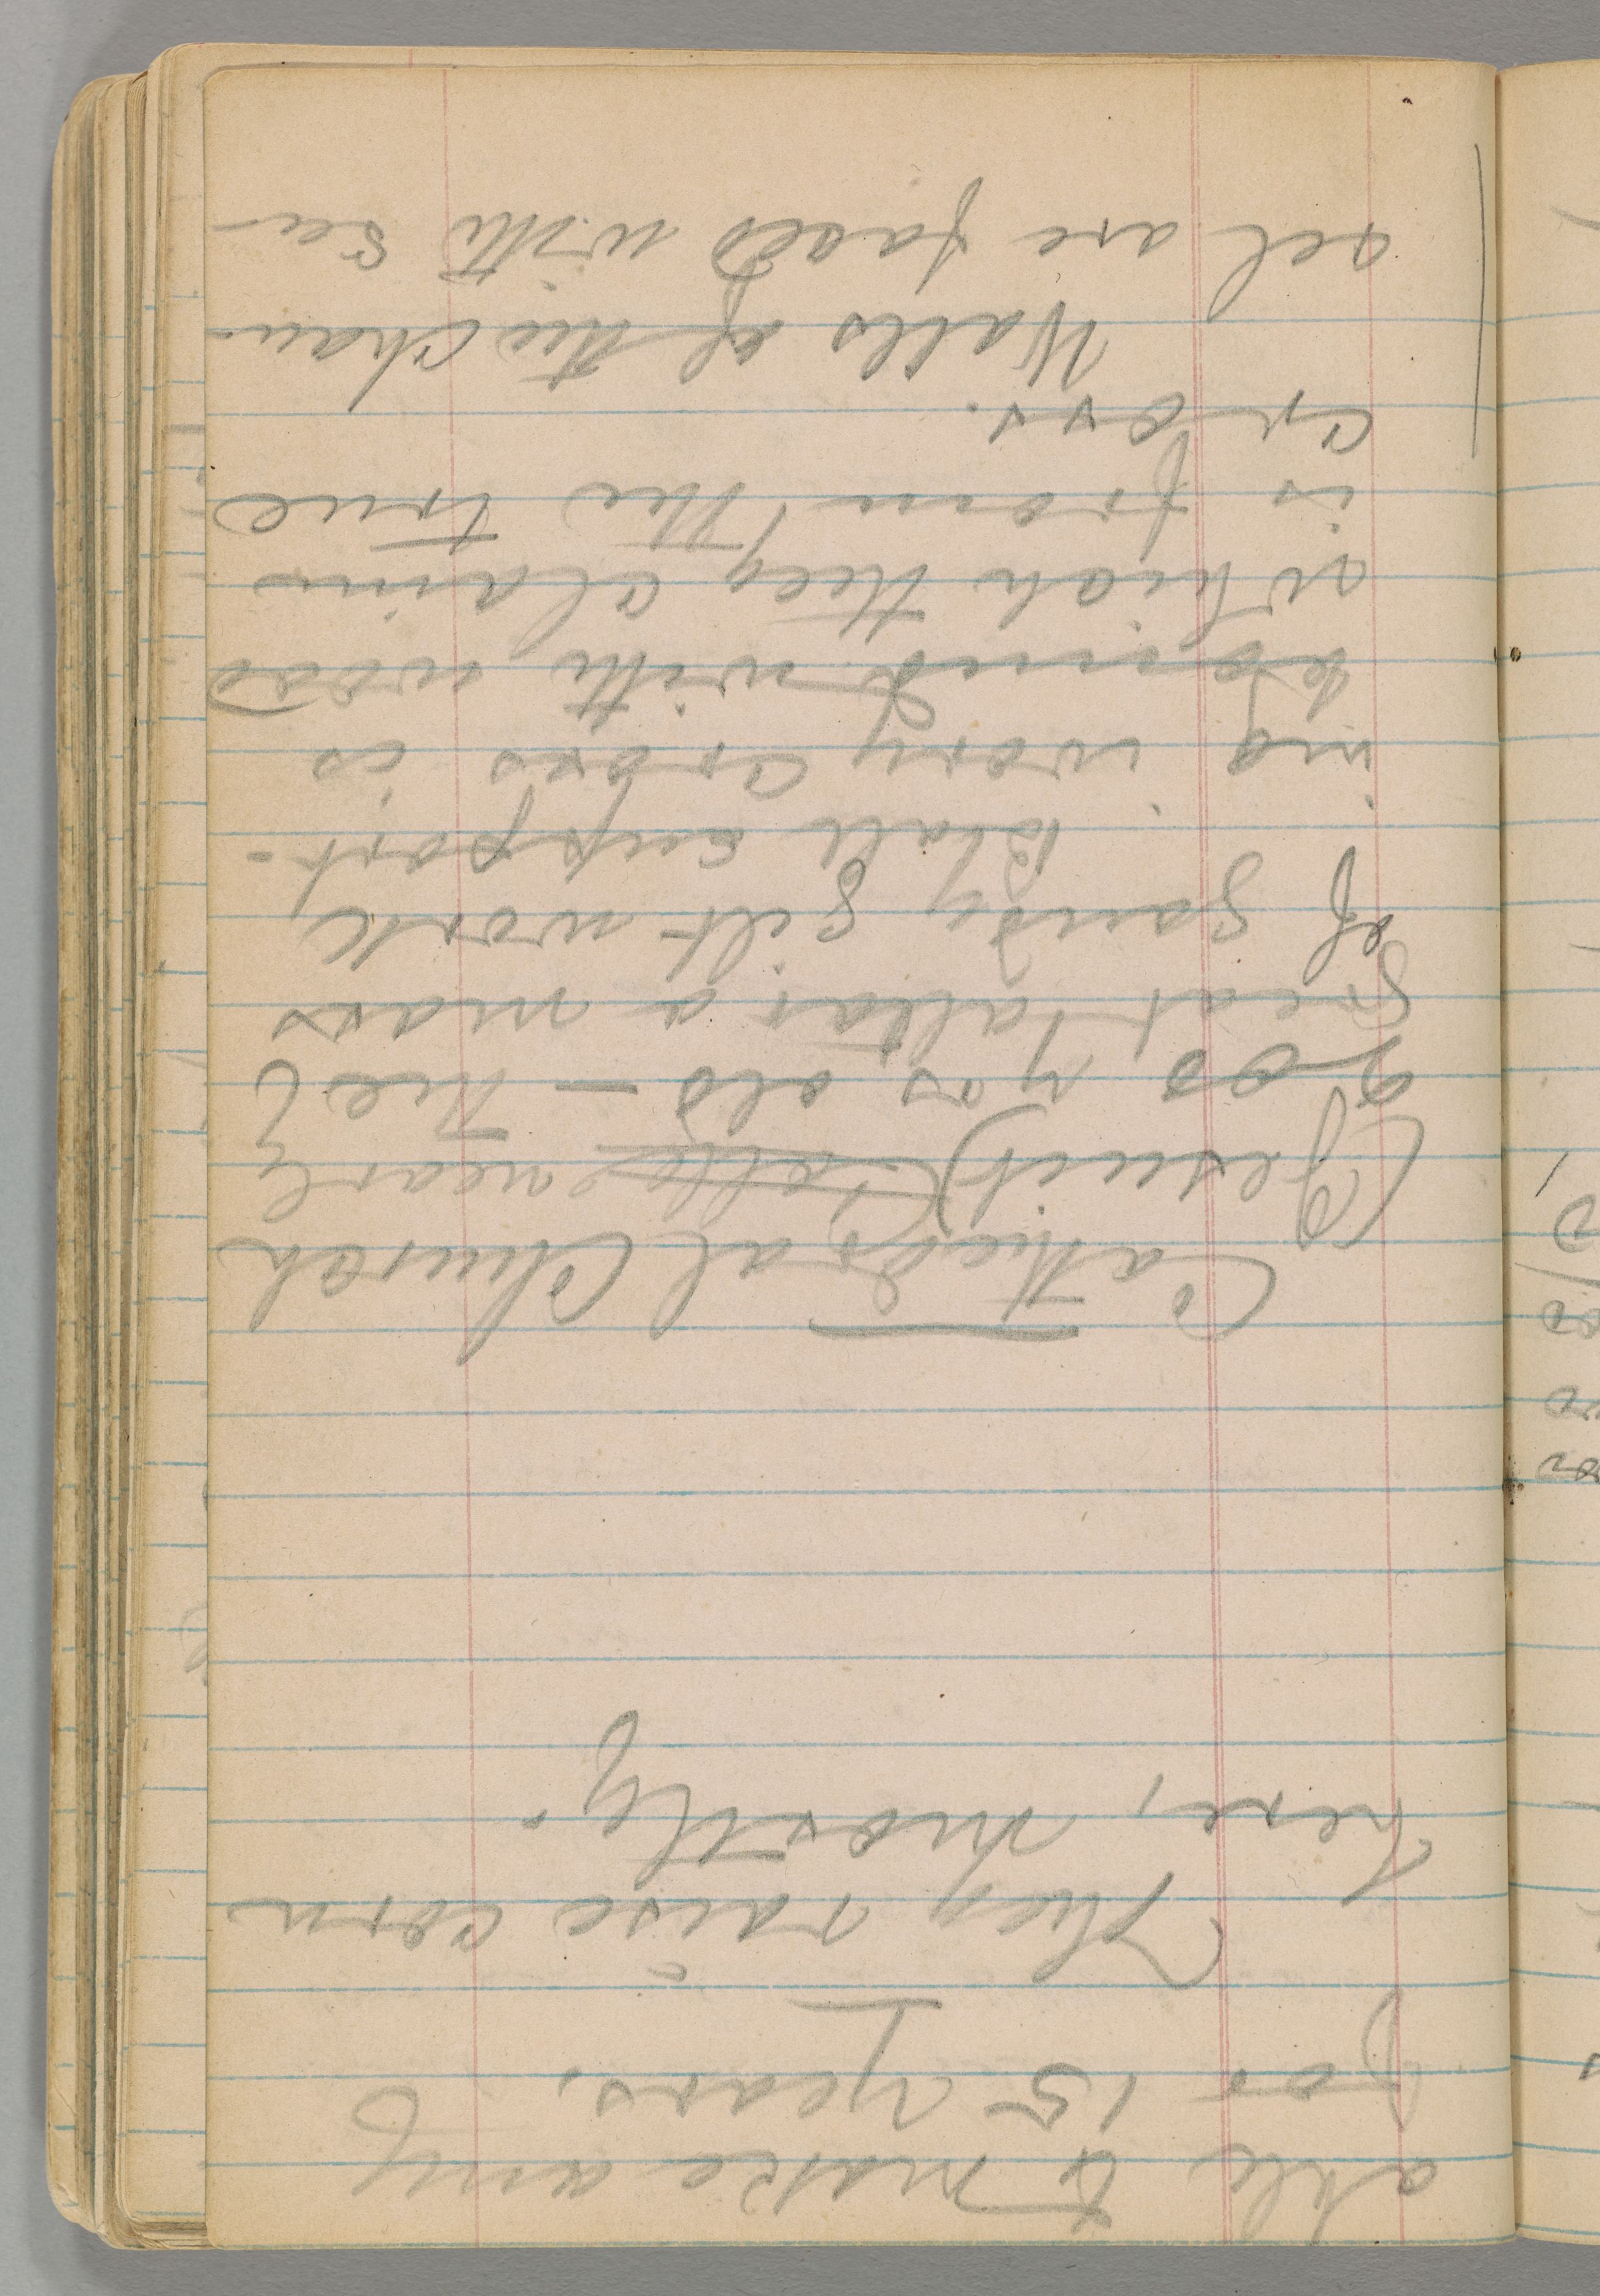 able to make any
for 15 years.
They raise corn
here, mostly.
Cathedral Church
(Jesuit) nearly
200 y'rs old —
great altar a mass
of gaudy gilt work
Black support-
ing ivory cross is
joined with wood
which they claim
is from the true
cross.
Walls of the chan-
cel are faced with su-